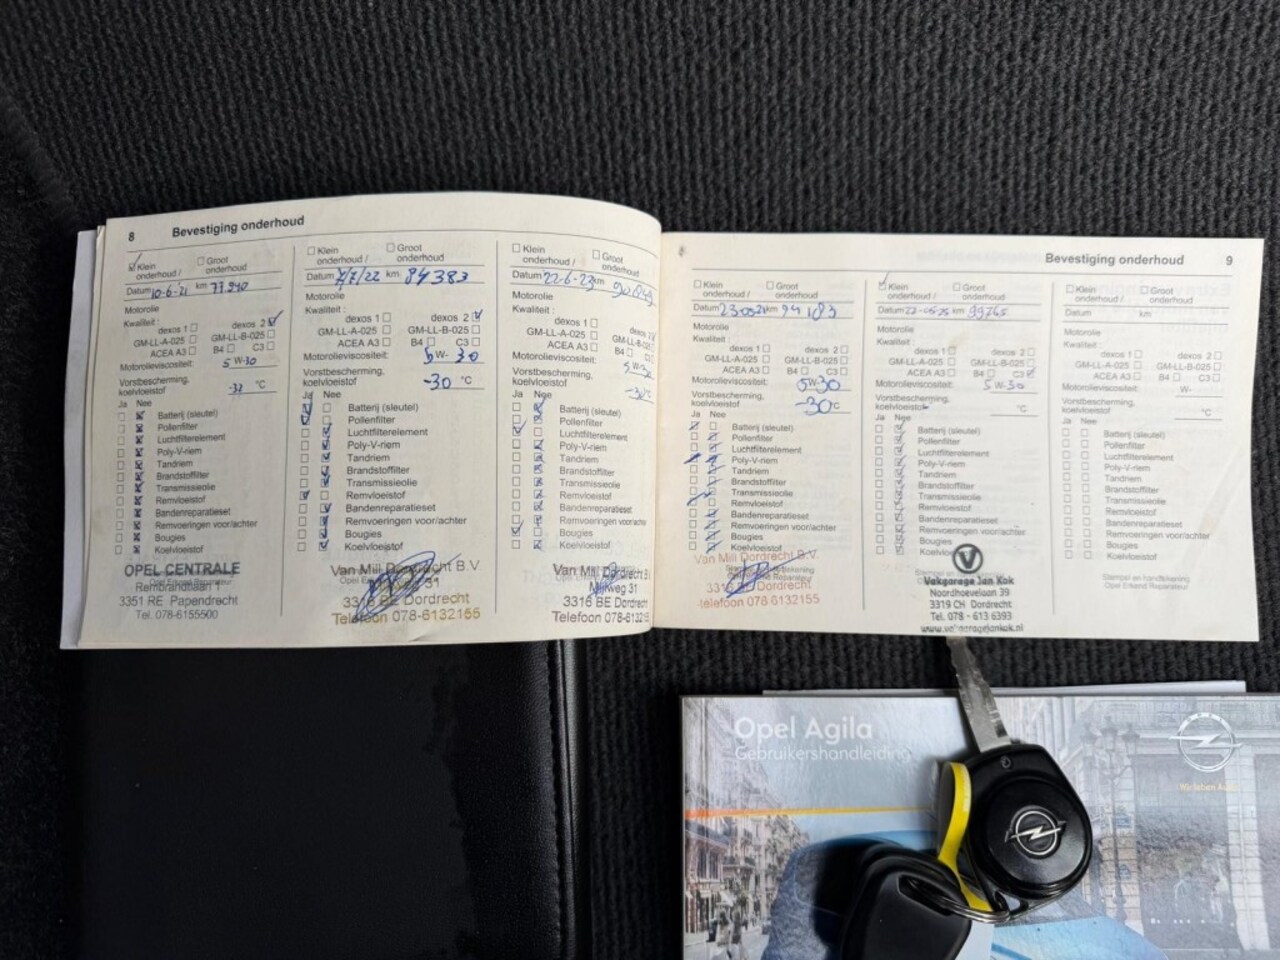 8 Bevestiging onderhoud
Klein onderhoud / Groot onderhoud
Datum 10-6-21 km
Motorolie
Kwaliteit :
dexos 1 dexos 2
GM-LL-A-025 GM-LL-B-025
ACEA A3 B4 C3
Motorolieviscositeit: 5 W-30
Vorstbescherming,
koelvloeistof °C
Ja Nee
Batterij (sleutel)
Pollenfilter
Luchtfilterelement
Poly-V-riem
Tandriem
Brandstoffilter
Transmissieolie
Remvloeistof
Bandenreparatieset
Remvoeringen voor/achter
Bougies
Koelvloeistof
OPEL CENTRALE
Rembrandtlaan 1
3351 RE Papendrecht
Tel. 078-6155500
Klein onderhoud / Groot onderhoud
Datum 7/7/22 km 84383
Motorolie
Kwaliteit :
dexos 1 dexos 2
GM-LL-A-025 GM-LL-B-025
ACEA A3 B4 C3
Motorolieviscositeit: 5 W- 30
Vorstbescherming,
koelvloeistof -30 °C
Ja Nee
Batterij (sleutel)
Pollenfilter
Luchtfilterelement
Poly-V-riem
Tandriem
Brandstoffilter
Transmissieolie
Remvloeistof
Bandenreparatieset
Remvoeringen voor/achter
Bougies
Koelvloeistof
Van Mill Dordrecht B.V
31
3316 BE Dordrecht
Telefoon 078-6132155
Klein onderhoud / Groot onderhoud
Datum 22-6-23 km
Motorolie
Kwaliteit :
dexos 1 dexos 2
GM-LL-A-025 GM-LL-B-025
ACEA A3 B4
Motorolieviscositeit: 5 W-30
Vorstbescherming,
koelvloeistof
Ja Nee
Batterij (sleutel)
Pollenfilter
Luchtfilterelement
Poly-V-riem
Tandriem
Brandstoffilter
Transmissieolie
Remvloeistof
Bandenreparatieset
Remvoeringen voor/achte
Bougies
Koelvloeistof
Van Mill Dordrecht
Mijlweg 31
3316 BE Dordrecht
Telefoon 078-613215
Bevestiging onderhoud 9
Klein onderhoud / Groot onderhoud
Datum km 94183
Motorolie
Kwaliteit :
dexos 1 dexos 2
GM-LL-A-025 GM-LL-B-025
ACEA A3 B4 C3
Motorolieviscositeit: 5W-30
Vorstbescherming,
koelvloeistof -30°C
Ja Nee
Batterij (sleutel)
Pollenfilter
Luchtfilterelement
Poly-V-riem
Tandriem
Brandstoffilter
Transmissieolie
Remvloeistof
Bandenreparatieset
Remvoeringen voor/achter
Bougies
Koelvloeistof
Van Mill Dordrecht B.V.
3316 BE Dordrecht
Telefoon 078 6132155
Klein onderhoud / Groot onderhoud
Datum 22-05-25 km 99765
Motorolie
Kwaliteit :
dexos 1 dexos 2
GM-LL-A-025 GM-LL-B-025
ACEA A3 B4 C3
Motorolieviscositeit: 5 W-30
Vorstbescherming,
koelvloeistof °C
Ja Nee
Batterij (sleutel)
Pollenfilter
Luchtfilterelement
Poly-V-riem
Tandriem
Brandstoffilter
Transmissieolie
Remvloeistof
Bandenreparatieset
Remvoeringen voor/achter
Bougies
Koelvloeistof
V
Vakgarage Jan Kok
Noordhoevelaan 39
3319 CH Dordrecht
Tel. 078 - 613 6393
www.vakgaragejankok.nl
Klein onderhoud / Groot onderhoud
Datum km
Motorolie
Kwaliteit :
dexos 1 dexos 2
GM-LL-A-025 GM-LL-B-025
ACEA A3 B4 C3
Motorolieviscositeit: W-
Vorstbescherming,
koelvloeistof °C
Ja Nee
Batterij (sleutel)
Pollenfilter
Luchtfilterelement
Poly-V-riem
Tandriem
Brandstoffilter
Transmissieolie
Remvloeistof
Bandenreparatieset
Remvoeringen voor/achter
Bougies
Koelvloeistof
Stempel en handtekening
Opel Erkend Reparateur
Opel Agila
Gebruikershandleiding
Wir leben Autos